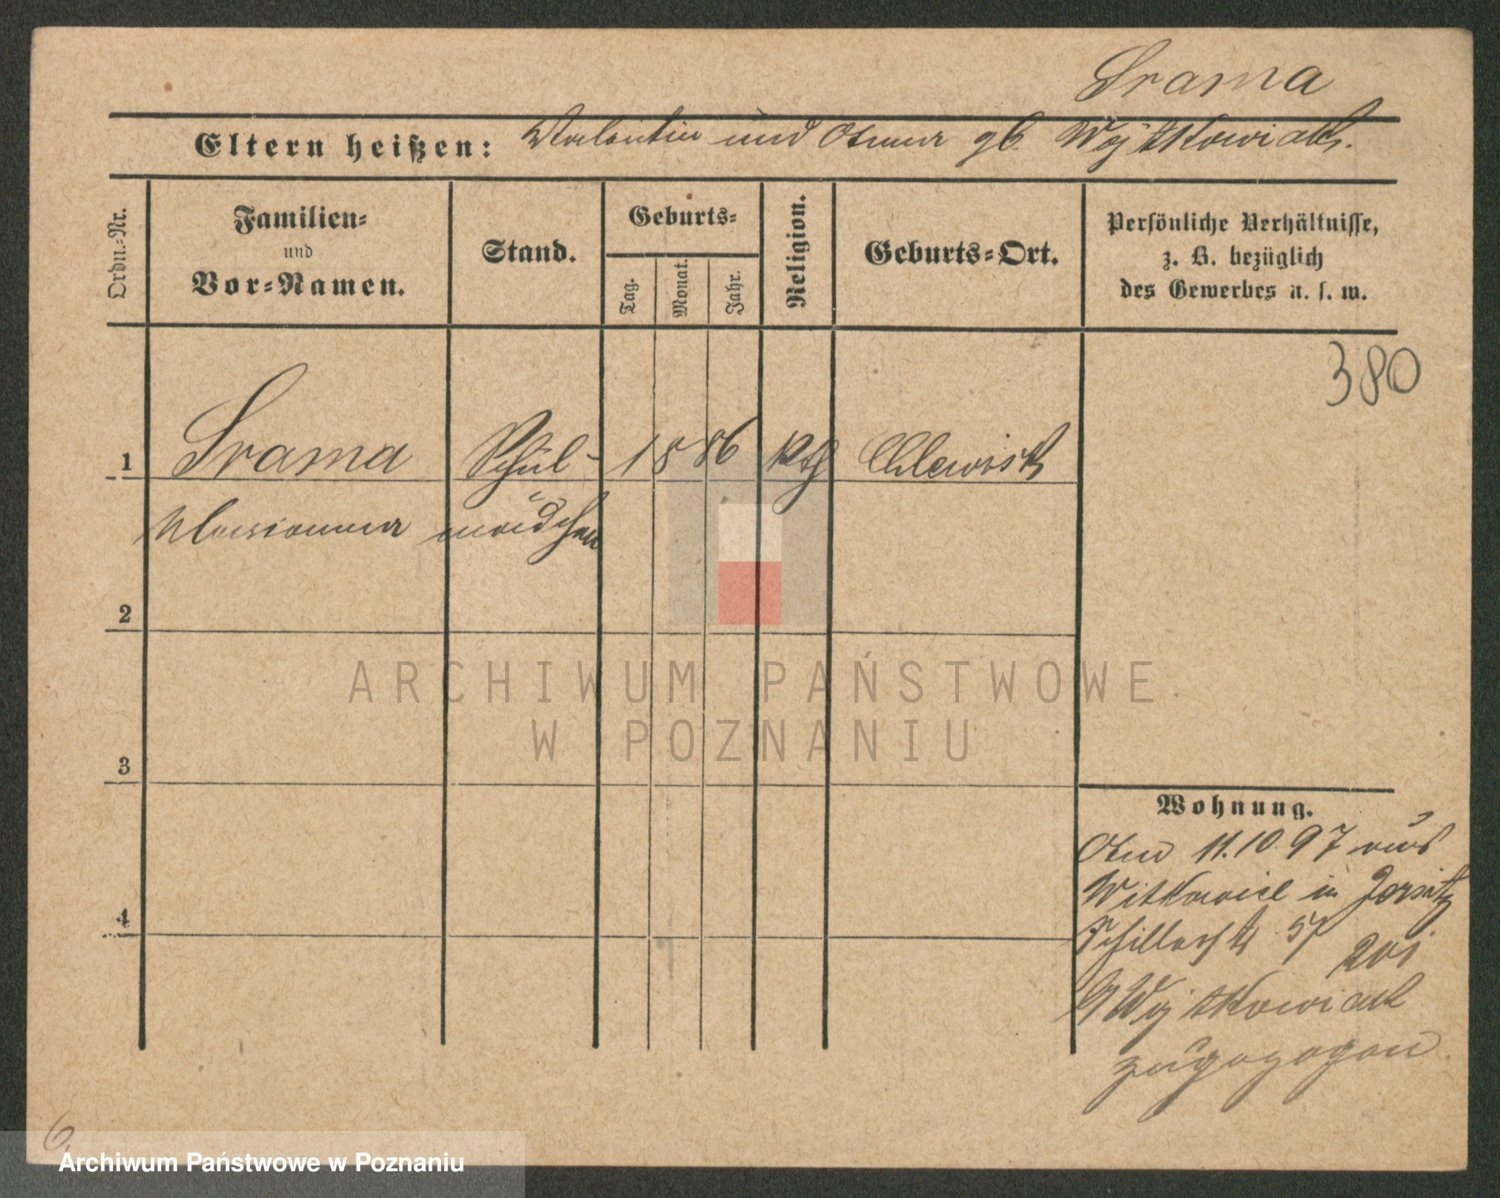 Srama
Eltern heißen: Valentin und Anna gb. Wojtkowiak.
Ordn.-Nr.
Familien-
und
Vor-Namen.
Stand.
Geburts-
Tag.
Monat.
Jahr.
Religion.
Geburts-Ort.
Persönliche Verhältnisse,
z. B. bezüglich
des Gewerbes u. s. w.
380
1
Srama Schul- 1886 Kth
Marianna mädchen
2
3
4
Wohnung.
Am 11.10.97 aus
in Jersitz
Schillerstr 5
bei
Wojtkowiak
zugezogen
6
ARCHIWUM PAŃSTWOWE
W POZNANIU
Archiwum Państwowe w Poznaniu